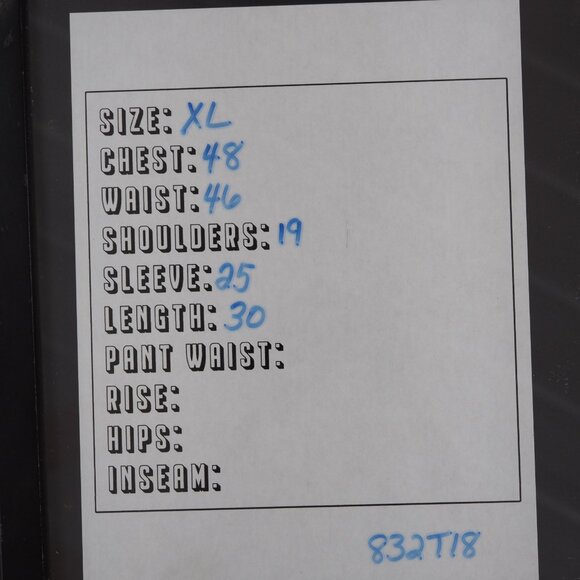 SIZE: XL
CHEST: 48
WAIST: 46
SHOULDERS: 19
SLEEVE: 25
LENGTH: 30
PANT WAIST:
RISE:
HIPS:
INSEAM:
832T18